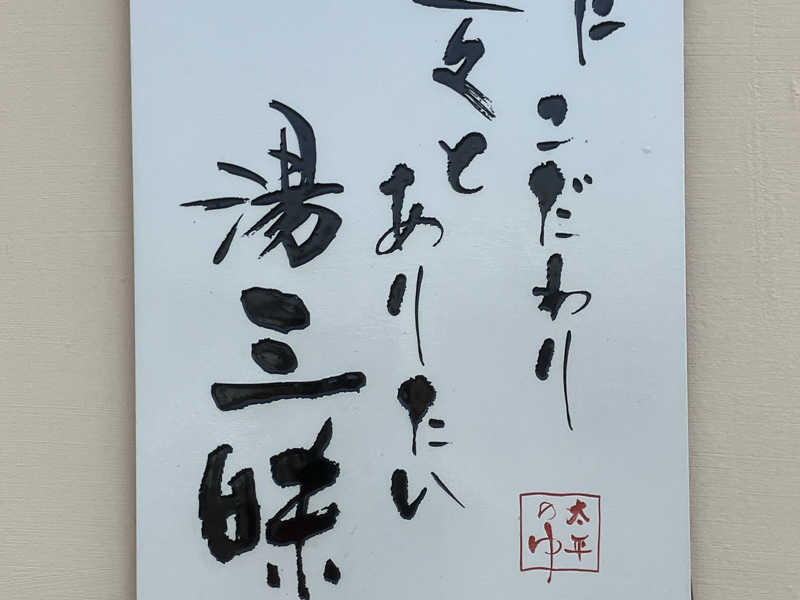 だこだわり
々とありたい
湯三昧
太平
のゆ